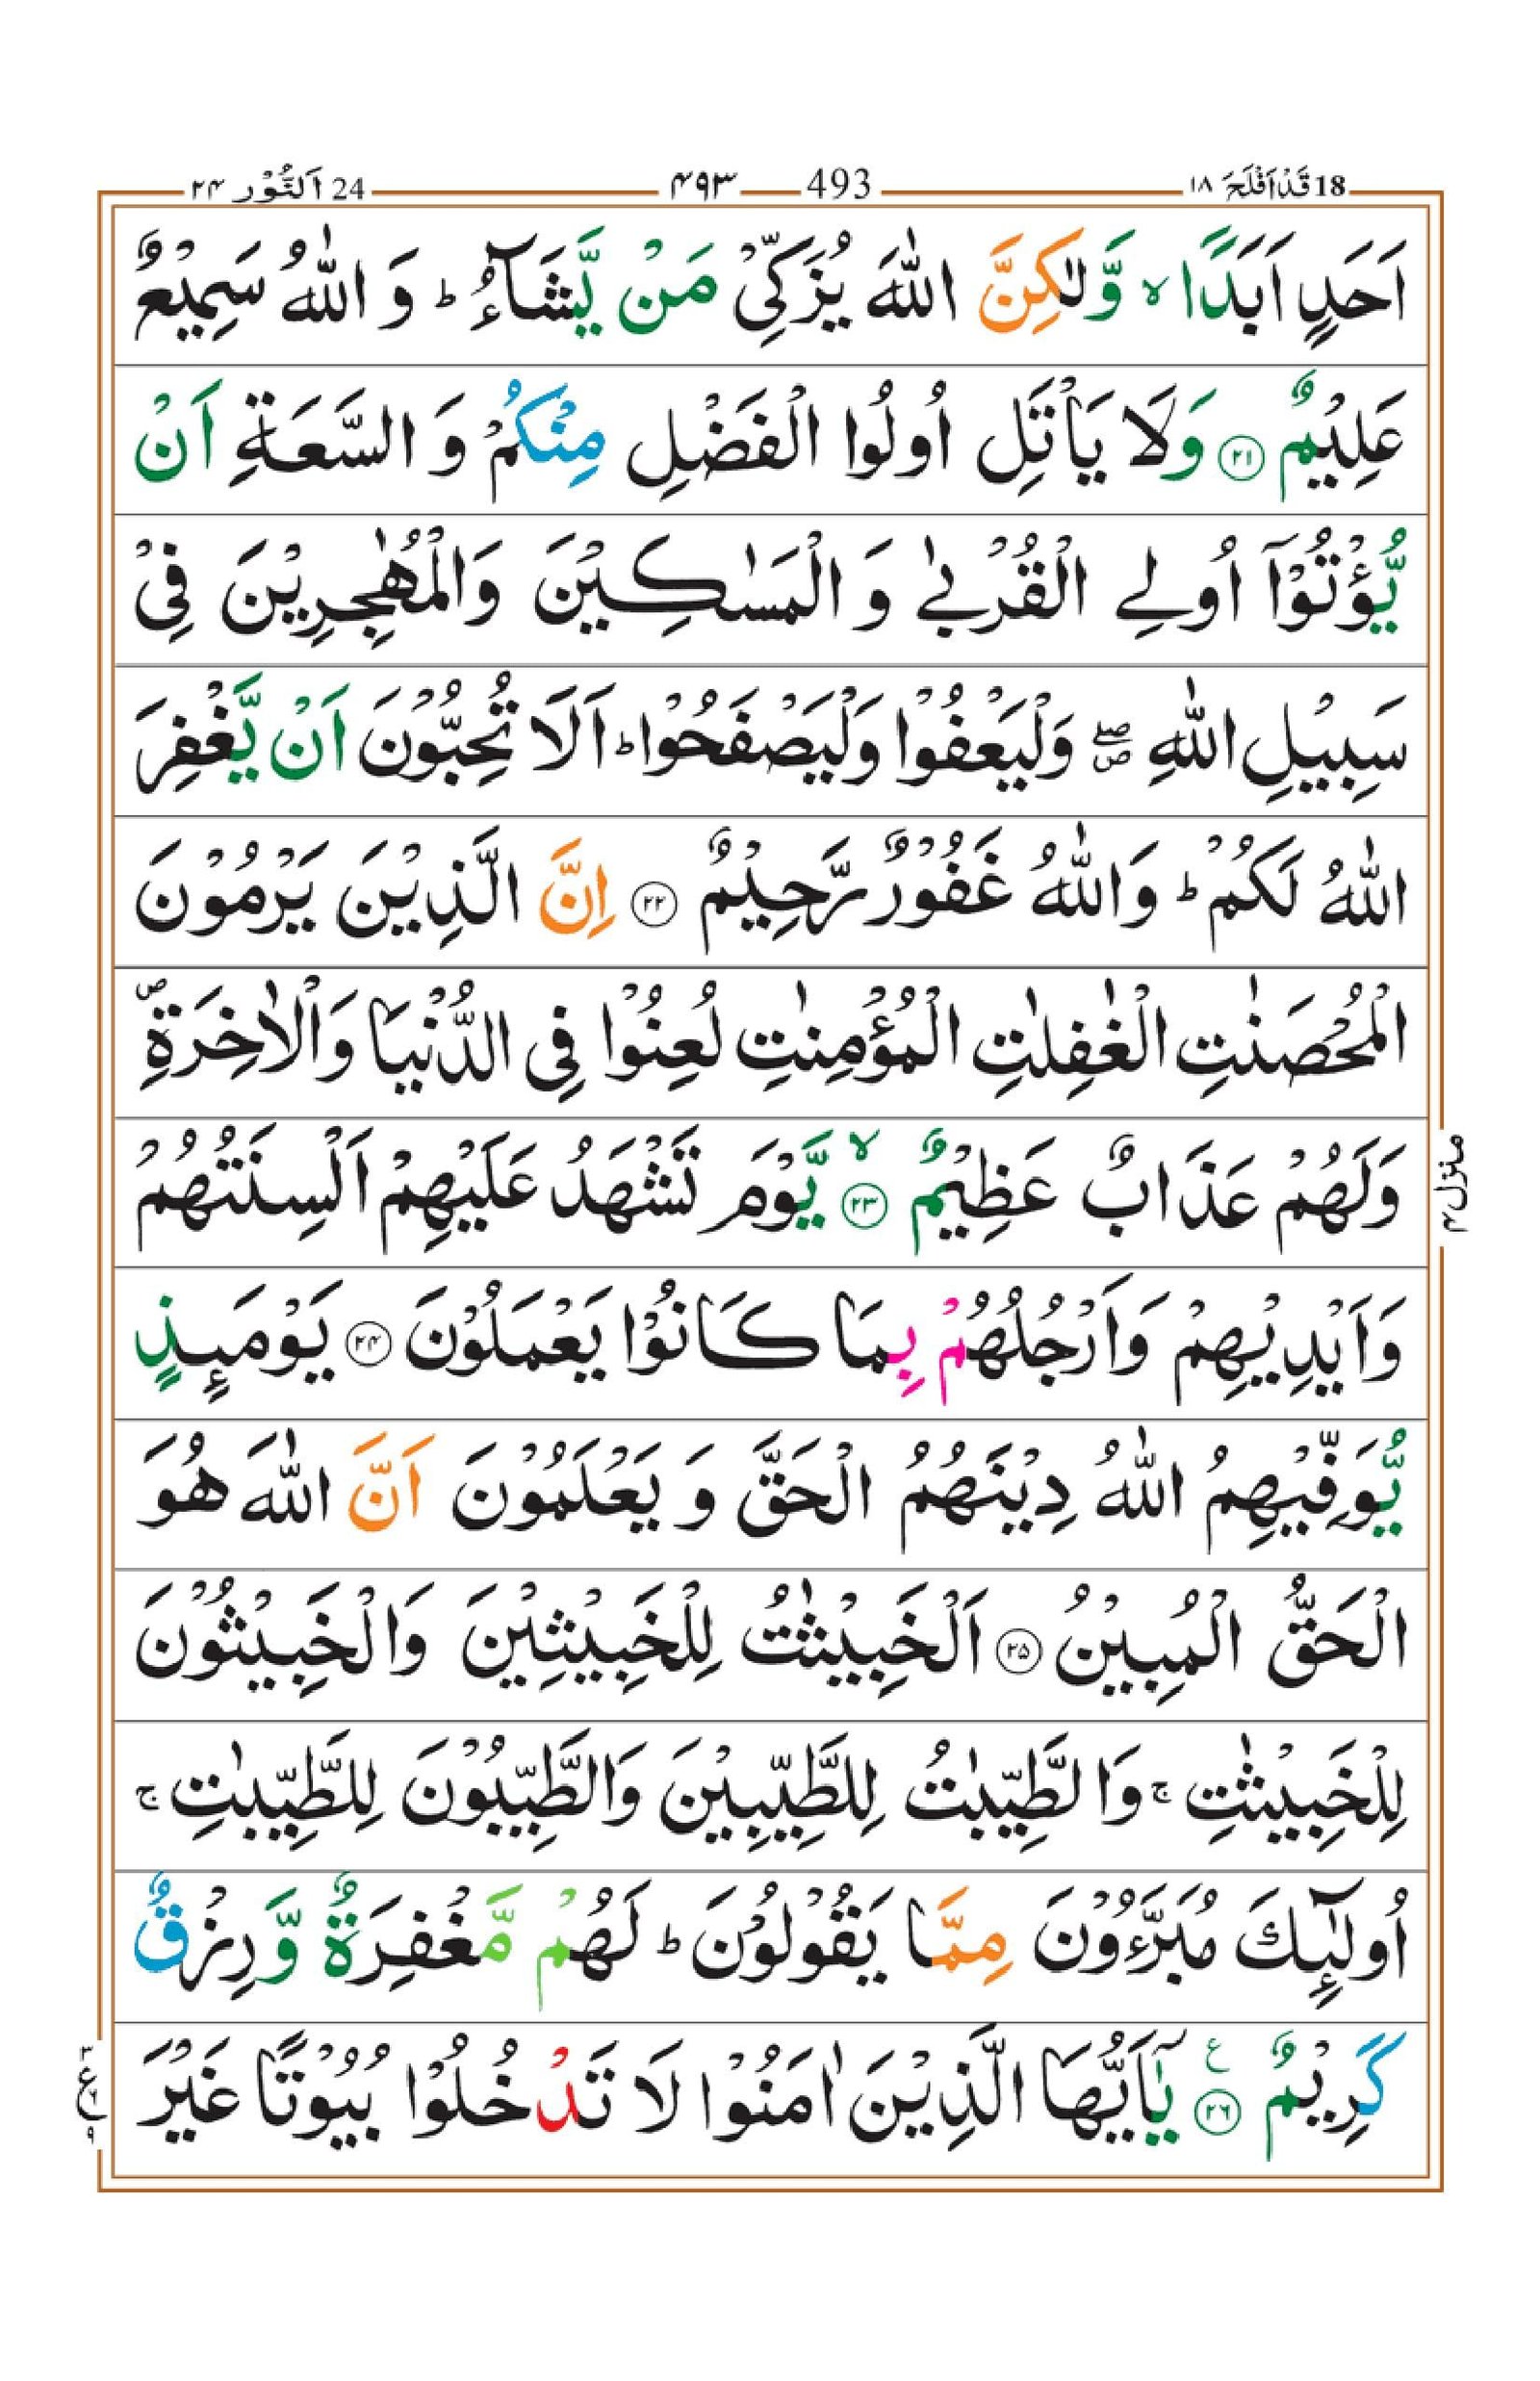 18 قَدْ اَفْلَحَ ١٨
493 ۴۹۳
24 اَلنُّوْر ۲۴
اَحَدٍ اَبَدًا ۙ وَّلٰكِنَّ اللّٰهَ يُزَكِّىْ مَنْ يَّشَآءُ ؕ وَ اللّٰهُ سَمِيْعٌ
عَلِيْمٌ ﴿۲۱﴾ وَلَا يَاْتَلِ اُولُوا الْفَضْلِ مِنْكُمْ وَ السَّعَةِ اَنْ
يُّؤْتُوْۤا اُولِى الْقُرْبٰى وَ الْمَسٰكِيْنَ وَالْمُهٰجِرِيْنَ فِىْ
سَبِيْلِ اللّٰهِ ۖ وَلْيَعْفُوْا وَلْيَصْفَحُوْا ؕ اَلَا تُحِبُّوْنَ اَنْ يَّغْفِرَ
اللّٰهُ لَكُمْ ؕ وَاللّٰهُ غَفُوْرٌ رَّحِيْمٌ ﴿۲۲﴾ اِنَّ الَّذِيْنَ يَرْمُوْنَ
الْمُحْصَنٰتِ الْغٰفِلٰتِ الْمُؤْمِنٰتِ لُعِنُوْا فِى الدُّنْيَا وَالْاٰخِرَةِ ۪
وَلَهُمْ عَذَابٌ عَظِيْمٌ ۙ ﴿۲۳﴾ يَّوْمَ تَشْهَدُ عَلَيْهِمْ اَلْسِنَتُهُمْ
وَاَيْدِيْهِمْ وَاَرْجُلُهُمْ بِمَا كَانُوْا يَعْمَلُوْنَ ﴿۲۴﴾ يَوْمَىِٕذٍ
يُّوَفِّيْهِمُ اللّٰهُ دِيْنَهُمُ الْحَقَّ وَ يَعْلَمُوْنَ اَنَّ اللّٰهَ هُوَ
الْحَقُّ الْمُبِيْنُ ﴿۲۵﴾ اَلْخَبِيْثٰتُ لِلْخَبِيْثِيْنَ وَالْخَبِيْثُوْنَ
لِلْخَبِيْثٰتِ ۚ وَالطَّيِّبٰتُ لِلطَّيِّبِيْنَ وَالطَّيِّبُوْنَ لِلطَّيِّبٰتِ ۚ
اُولٰٓىِٕكَ مُبَرَّءُوْنَ مِمَّا يَقُوْلُوْنَ ؕ لَهُمْ مَّغْفِرَةٌ وَّرِزْقٌ
كَرِيْمٌ ﴿۲۶﴾ ع يٰۤاَيُّهَا الَّذِيْنَ اٰمَنُوْا لَا تَدْخُلُوْا بُيُوْتًا غَيْرَ
منزل ۴
۳ ع ۹